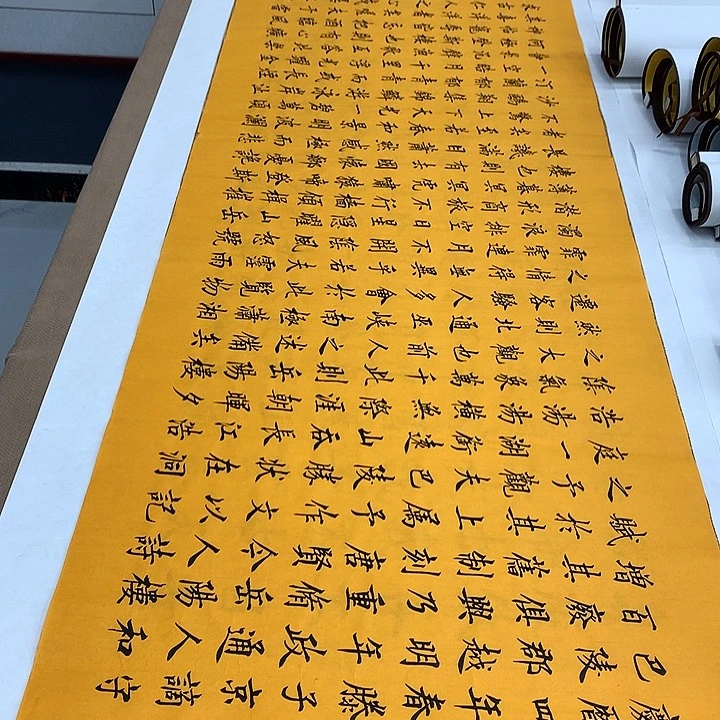 慶曆四年春滕子京謫守
巴陵郡越明年政通人和
百廢俱興乃重脩岳陽樓
增其舊制刻唐賢今人詩
賦於其上屬予作文以記
之予觀夫巴陵勝狀在洞
庭一湖銜遠山吞長江浩
浩湯湯橫無際涯朝暉夕
陰氣象萬千此則岳陽樓
之大觀也前人之述備矣
然則北通巫峽南極瀟湘
遷客騷人多會於此覽物
之情得無異乎若夫霪雨
霏霏連月不開陰風怒號
濁浪排空日星隱曜山岳
潛形商旅不行檣傾楫摧
薄暮冥冥虎嘯猿啼登斯
樓也則有去國懷鄉憂讒
畏譏滿目蕭然感極而悲
者矣至若春和景明波瀾
不驚上下天光一碧萬頃
沙鷗翔集錦鱗游泳岸芷
汀蘭郁郁青青而或長煙
一空皓月千里浮光躍金